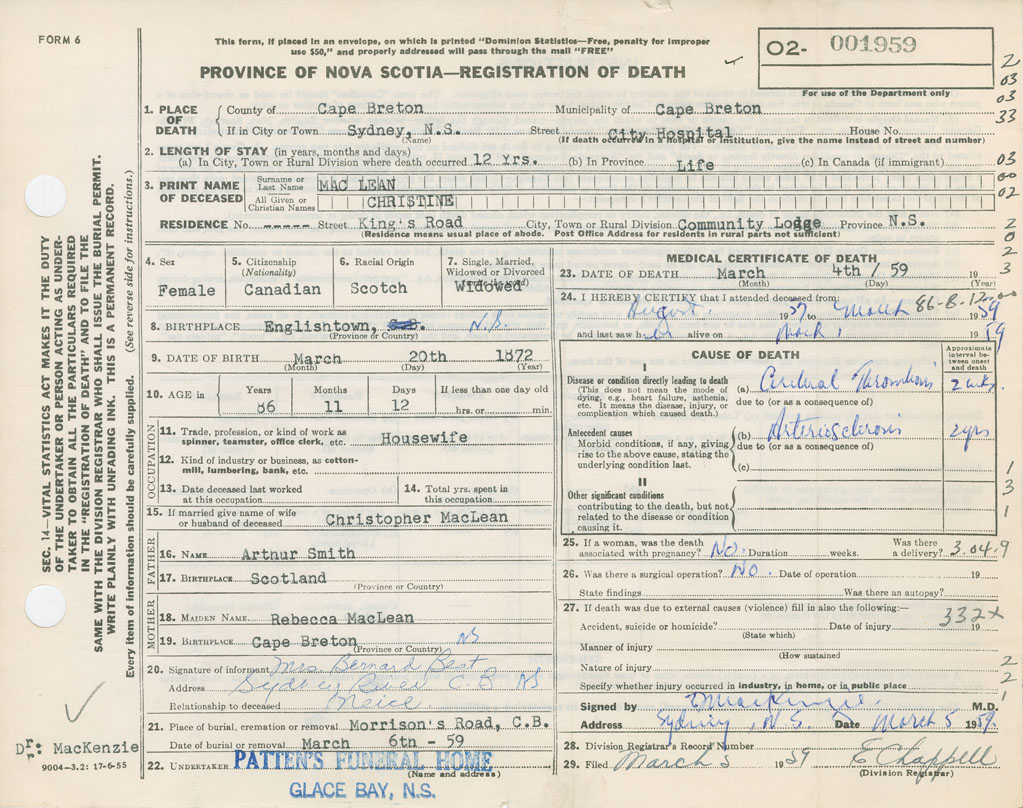 FORM 6
This form, if placed in an envelope, on which is printed "Dominion Statistics—Free, penalty for improper
use $50," and properly addressed will pass through the mail "FREE"
PROVINCE OF NOVA SCOTIA—REGISTRATION OF DEATH
02- 001959
For use of the Department only
1. PLACE OF DEATH County of Cape Breton Municipality of Cape Breton
If in City or Town Sydney, N.S. Street City Hospital House No.
(Name) (If death occurred in a hospital or institution, give the name instead of street and number)
2. LENGTH OF STAY (in years, months and days)
(a) In City, Town or Rural Division where death occurred 12 Yrs. (b) In Province Life (c) In Canada (if immigrant)
3. PRINT NAME OF DECEASED Surname or Last Name MAC LEAN
All Given or Christian Names CHRISTINE
RESIDENCE No. ----- Street King's Road City, Town or Rural Division Community Lodge Province N.S.
(Residence means usual place of abode. Post Office Address for residents in rural parts not sufficient)
2
03
03
33
03
00
02
2
0
2
3
4. Sex Female
5. Citizenship (Nationality) Canadian
6. Racial Origin Scotch
7. Single, Married, Widowed or Divorced Widowed
8. BIRTHPLACE Englishtown, N.S.
(Province or Country)
9. DATE OF BIRTH March 20th 1872
(Month) (Day) (Year)
10. AGE in Years Months Days If less than one day old
86 11 12 hrs. or min.
OCCUPATION
11. Trade, profession, or kind of work as
spinner, teamster, office clerk, etc. Housewife
12. Kind of industry or business, as cotton-
mill, lumbering, bank, etc.
13. Date deceased last worked
at this occupation
14. Total yrs. spent in
this occupation
15. If married give name of wife
or husband of deceased Christopher MacLean
FATHER
16. NAME Artnur Smith
17. BIRTHPLACE Scotland
(Province or Country)
MOTHER
18. MAIDEN NAME Rebecca MacLean
19. BIRTHPLACE Cape Breton NS
(Province or Country)
20. Signature of informant Mrs Bernard Best
Address Sydney River C.B NS
Relationship to deceased Neice
21. Place of burial, cremation or removal Morrison's Road, C.B.
Date of burial or removal March 6th - 59
22. UNDERTAKER PATTEN'S FUNERAL HOME
(Name and address)
GLACE BAY, N.S.
MEDICAL CERTIFICATE OF DEATH
23. DATE OF DEATH March 4th / 59 19
(Month) (Day) (Year)
24. I HEREBY CERTIFY that I attended deceased from:
86-B-12
August 1957 to March 1959
and last saw h alive on March 1 1959
CAUSE OF DEATH
Approximate interval between onset and death
I
Disease or condition directly leading to death
(This does not mean the mode of
dying, e.g., heart failure, asthenia,
etc. It means the disease, injury, or
complication which caused death.)
(a) Cerebral Thrombosis 2 wks.
due to (or as a consequence of)
Antecedent causes
Morbid conditions, if any, giving
rise to the above cause, stating the
underlying condition last.
(b) Arteriosclerosis 2 yrs
due to (or as a consequence of)
(c)
II
Other significant conditions
contributing to the death, but not
related to the disease or condition
causing it.
1
3
1
25. If a woman, was the death
associated with pregnancy? No. Duration weeks. Was there
a delivery? 3.04.9
26. Was there a surgical operation? No. Date of operation 19
State findings Was there an autopsy?
27. If death was due to external causes (violence) fill in also the following:—
332x
Accident, suicide or homicide? Date of injury 19
(State which)
Manner of injury
(How sustained
Nature of injury
Specify whether injury occurred in industry, in home, or in public place
2
2
1
Signed by MacKenzie M.D.
Address Sydney, N.S. Date March 5 1959.
28. Division Registrar's Record Number
29. Filed March 5 1959 E Chappell
(Division Registrar)
SEC. 14—VITAL STATISTICS ACT MAKES IT THE DUTY
OF THE UNDERTAKER OR PERSON ACTING AS UNDER-
TAKER TO OBTAIN ALL THE PARTICULARS REQUIRED
IN THE "REGISTRATION OF DEATH" AND TO FILE THE
SAME WITH THE DIVISION REGISTRAR WHO SHALL ISSUE THE BURIAL PERMIT.
WRITE PLAINLY WITH UNFADING INK. THIS IS A PERMANENT RECORD.
Every item of information should be carefully supplied. (See reverse side for instructions.)
Dr: MacKenzie
9004-3.2: 17-6-55